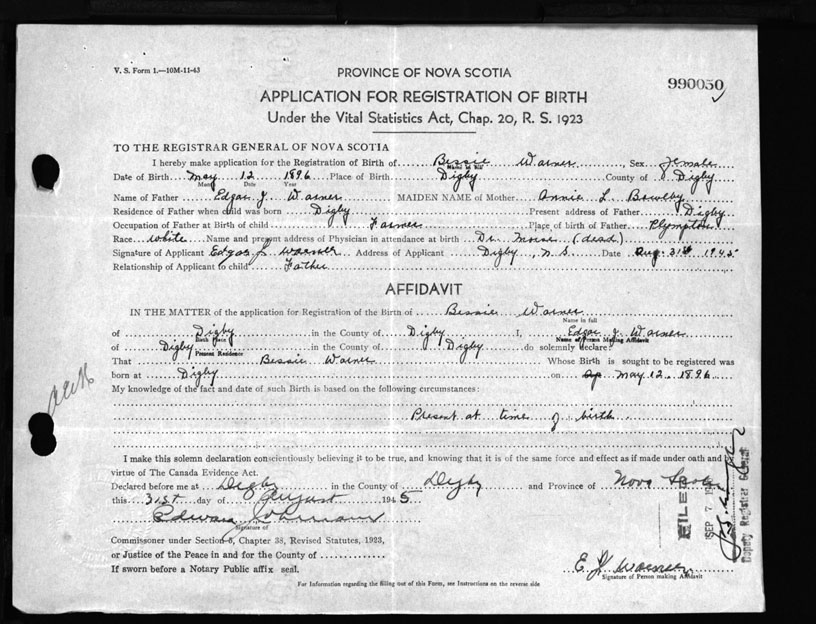 V. S. Form 1.—10M-11-43
PROVINCE OF NOVA SCOTIA
990050
APPLICATION FOR REGISTRATION OF BIRTH
Under the Vital Statistics Act, Chap. 20, R. S. 1923
TO THE REGISTRAR GENERAL OF NOVA SCOTIA
I hereby make application for the Registration of Birth of Bessie Warner, Sex Female
Name in full
Date of Birth May 12 1896 Place of Birth Digby County of Digby
Month Date Year
Name of Father Edgar J. Warner MAIDEN NAME of Mother Annie L Bowlby
Residence of Father when child was born Digby Present address of Father Digby
Occupation of Father at Birth of child Farmer Place of birth of Father Plympton
Race White Name and present address of Physician in attendance at birth Dr. Morse (dead)
Signature of Applicant Edgar J. Warner Address of Applicant Digby, N S Date Aug. 31st 1945
Relationship of Applicant to child Father
AFFIDAVIT
IN THE MATTER of the application for Registration of the Birth of Bessie Warner
Name in full
of Digby in the County of Digby I, Edgar J. Warner
Birth Place Name of Person Making Affidavit
of Digby in the County of Digby do solemnly declare:
Present Residence
That Bessie Warner Whose Birth is sought to be registered was
born at Digby on May 12. 1896
My knowledge of the fact and date of such Birth is based on the following circumstances:
Present at time of birth
I make this solemn declaration conscientiously believing it to be true, and knowing that it is of the same force and effect as if made under oath and by
virtue of The Canada Evidence Act.
Declared before me at Digby in the County of Digby and Province of Nova Scotia
this 31st day of August 1945
Edward
Signature of
Commissoner under Section 8, Chapter 38, Revised Statutes, 1923,
or Justice of the Peace in and for the County of
If sworn before a Notary Public affix seal.
E. J. Warner
Signature of Person making Affidavit
For Information regarding the filling out of this Form, see Instructions on the reverse side
FILED
SEP 7 19
Deputy Registrar General